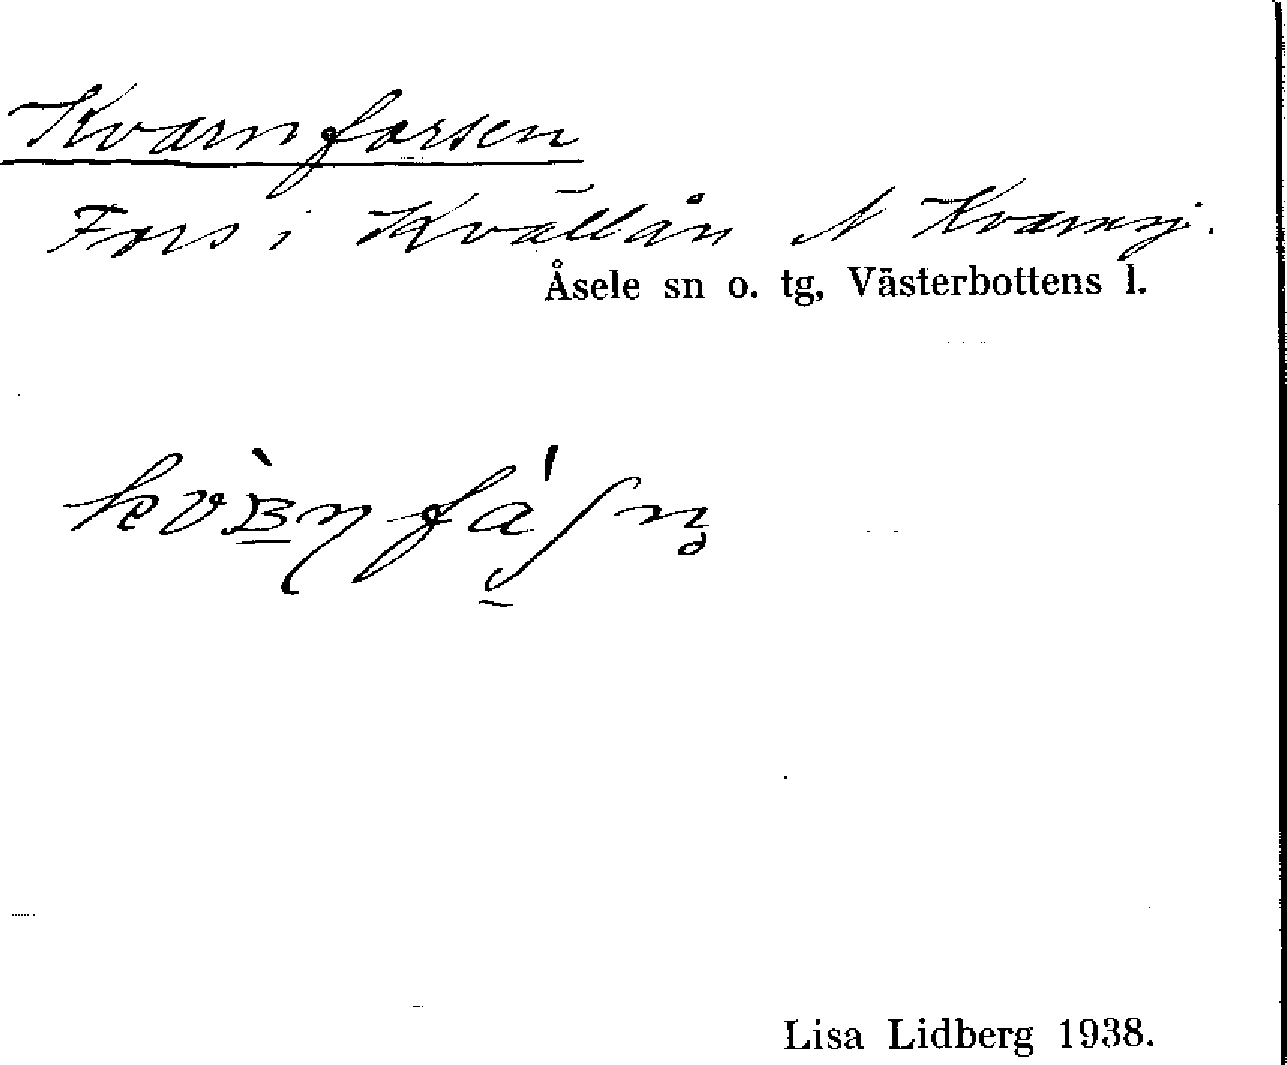 Kvarnforsen
Fors i Kvällån N Kvarnsj.
Åsele sn o. tg, Västerbottens l.
Lisa Lidberg 1938.